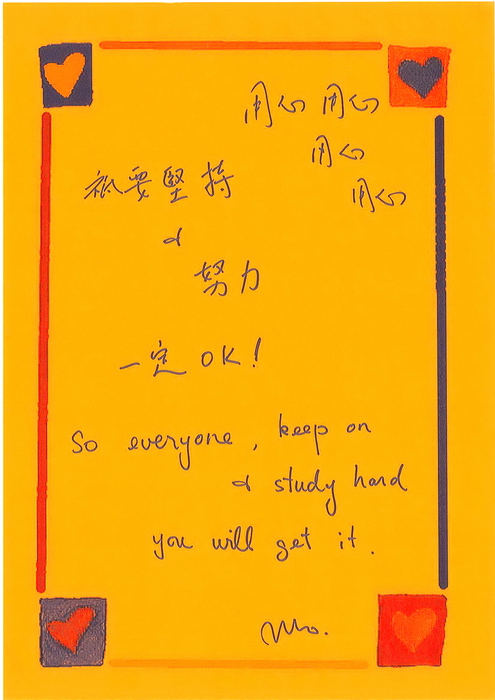 用心 用心
用心
用心
祇要堅持
&
努力
一定 OK!
So everyone, keep on
& study hard
you will get it.